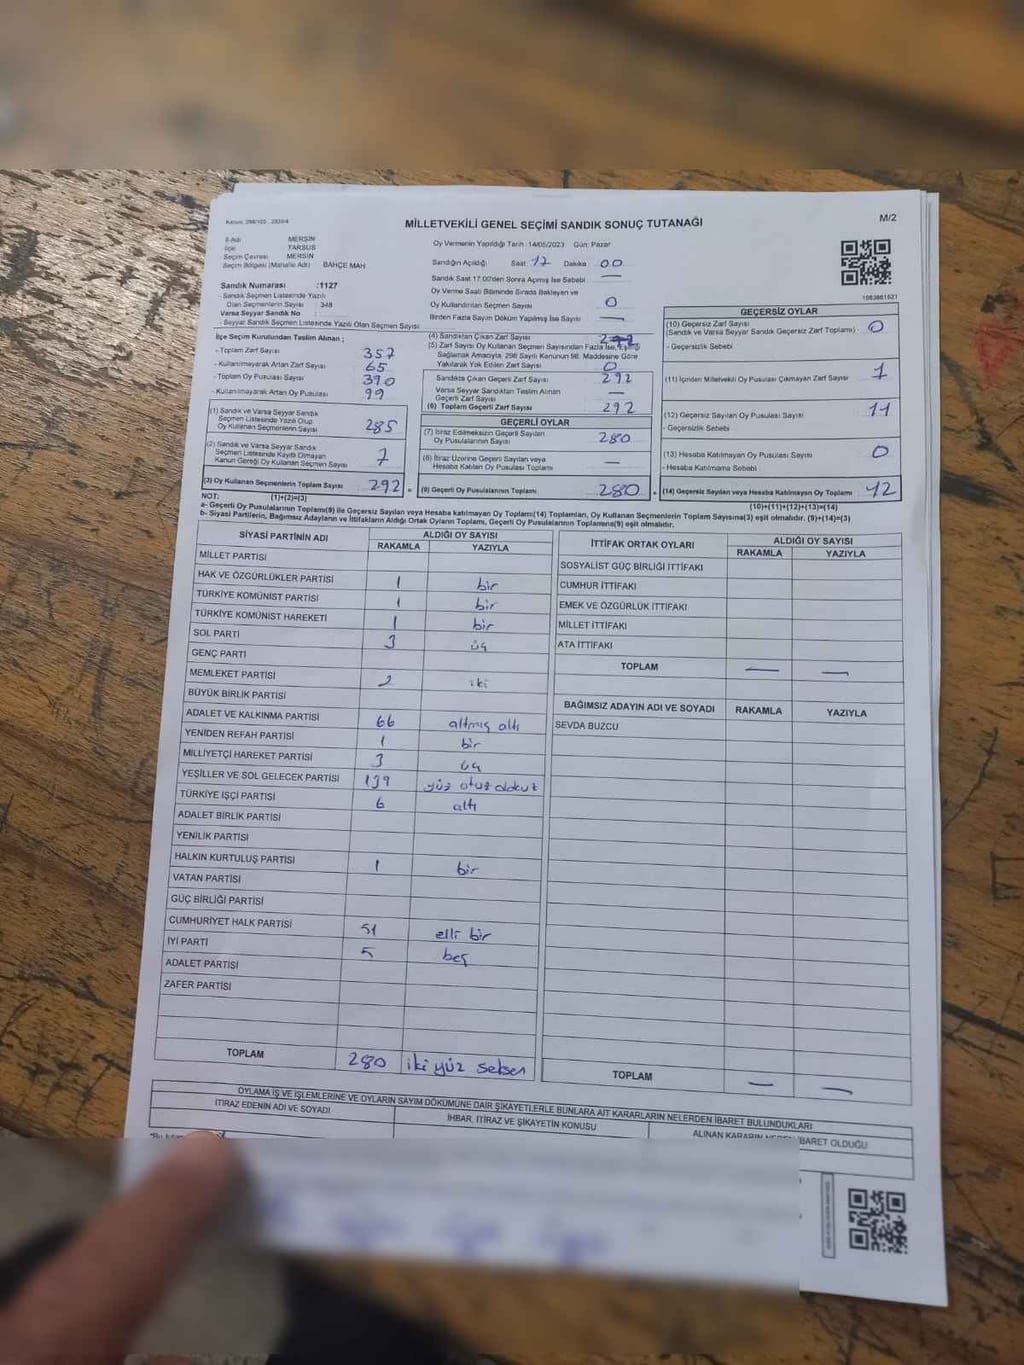 Kanun: 298/105 2839/4
MİLLETVEKİLİ GENEL SEÇİMİ SANDIK SONUÇ TUTANAĞI
M/2
İl Adı MERSİN
İlçe TARSUS
Seçim Çevresi MERSİN
Seçim Bölgesi (Mahalle Adı) BAHÇE MAH
Sandık Numarası :1127
- Sandık Seçmen Listesinde Yazılı
Olan Seçmenlerin Sayısı : 348
Varsa Seyyar Sandık No :
- Seyyar Sandık Seçmen Listesinde Yazılı Olan Seçmen Sayısı
İlçe Seçim Kurulundan Teslim Alınan ;
- Toplam Zarf Sayısı 357
- Kullanılmayarak Artan Zarf Sayısı 65
- Toplam Oy Pusulası Sayısı 390
- Kullanılmayarak Artan Oy Pusulası 99
(1) Sandık ve Varsa Seyyar Sandık
Seçmen Listesinde Yazılı Olup
Oy Kullanan Seçmenlerin Sayısı 285
(2) Sandık ve Varsa Seyyar Sandık
Seçmen Listesinde Kayıtlı Olmayan
Kanun Gereği Oy Kullanan Seçmen Sayısı 7
(3) Oy Kullanan Seçmenlerin Toplam Sayısı 292 =
Oy Vermenin Yapıldığı Tarih : 14/05/2023 Gün: Pazar
Sandığın Açıldığı Saat 17 Dakika 00
Sandık Saat 17:00'den Sonra Açılmış İse Sebebi —
Oy Verme Saati Bitiminde Sırada Bekleyen ve
Oy Kullandırılan Seçmen Sayısı 0
Birden Fazla Sayım Döküm Yapılmış İse Sayısı —
(4) Sandıktan Çıkan Zarf Sayısı 292
(5) Zarf Sayısı Oy Kullanan Seçmen Sayısından Fazla İse,
Sağlamak Amacıyla, 298 Sayılı Kanunun 98. Maddesine Göre
Yakılarak Yok Edilen Zarf Sayısı 0
Sandıkta Çıkan Geçerli Zarf Sayısı 292
Varsa Seyyar Sandıktan Teslim Alınan
Geçerli Zarf Sayısı —
(6) Toplam Geçerli Zarf Sayısı 292
GEÇERLİ OYLAR
(7) İtiraz Edilmeksizin Geçerli Sayılan
Oy Pusulalarının Sayısı 280
(8) İtiraz Üzerine Geçerli Sayılan veya
Hesaba Katılan Oy Pusulası Toplamı —
(9) Geçerli Oy Pusulalarının Toplamı 280 +
1083861521
GEÇERSİZ OYLAR
(10) Geçersiz Zarf Sayısı
(Sandık ve Varsa Seyyar Sandık Geçersiz Zarf Toplamı) 0
- Geçersizlik Sebebi
(11) İçinden Milletvekili Oy Pusulası Çıkmayan Zarf Sayısı 1
(12) Geçersiz Sayılan Oy Pusulası Sayısı 11
- Geçersizlik Sebebi
(13) Hesaba Katılmayan Oy Pusulası Sayısı 0
- Hesaba Katılmama Sebebi
(14) Geçersiz Sayılan veya Hesaba Katılmayan Oy Toplamı 12
NOT: (1)+(2)=(3) (10)+(11)+(12)+(13)=(14)
a- Geçerli Oy Pusulalarının Toplamı(9) ile Geçersiz Sayılan veya Hesaba katılmayan Oy Toplamı(14) Toplamları, Oy Kullanan Seçmenlerin Toplam Sayısına(3) eşit olmalıdır. (9)+(14)=(3)
b- Siyasi Partilerin, Bağımsız Adayların ve İttifakların Aldığı Ortak Oyların Toplamı, Geçerli Oy Pusulalarının Toplamına(9) eşit olmalıdır.
SİYASİ PARTİNİN ADI ALDIĞI OY SAYISI
RAKAMLA YAZIYLA
MİLLET PARTİSİ
HAK VE ÖZGÜRLÜKLER PARTİSİ 1 bir
TÜRKİYE KOMÜNİST PARTİSİ 1 bir
TÜRKİYE KOMÜNİST HAREKETİ 1 bir
SOL PARTİ 3 üç
GENÇ PARTİ
MEMLEKET PARTİSİ 2 iki
BÜYÜK BİRLİK PARTİSİ
ADALET VE KALKINMA PARTİSİ 66 altmış altı
YENİDEN REFAH PARTİSİ 1 bir
MİLLİYETÇİ HAREKET PARTİSİ 3 üç
YEŞİLLER VE SOL GELECEK PARTİSİ 139 yüz otuz dokuz
TÜRKİYE İŞÇİ PARTİSİ 6 altı
ADALET BİRLİK PARTİSİ
YENİLİK PARTİSİ
HALKIN KURTULUŞ PARTİSİ 1 bir
VATAN PARTİSİ
GÜÇ BİRLİĞİ PARTİSİ
CUMHURİYET HALK PARTİSİ 51 elli bir
İYİ PARTİ 5 beş
ADALET PARTİSİ
ZAFER PARTİSİ
TOPLAM 280 iki yüz seksen
İTTİFAK ORTAK OYLARI ALDIĞI OY SAYISI
RAKAMLA YAZIYLA
SOSYALİST GÜÇ BİRLİĞİ İTTİFAKI
CUMHUR İTTİFAKI
EMEK VE ÖZGÜRLÜK İTTİFAKI
MİLLET İTTİFAKI
ATA İTTİFAKI
TOPLAM — —
BAĞIMSIZ ADAYIN ADI VE SOYADI RAKAMLA YAZIYLA
SEVDA BUZCU
TOPLAM — —
OYLAMA İŞ VE İŞLEMLERİNE VE OYLARIN SAYIM DÖKÜMÜNE DAİR ŞİKAYETLERLE BUNLARA AİT KARARLARIN NELERDEN İBARET BULUNDUKLARI
İTİRAZ EDENİN ADI VE SOYADI
İHBAR, İTİRAZ VE ŞİKAYETİN KONUSU
ALINAN KARARIN NEDEN İBARET OLDUĞU